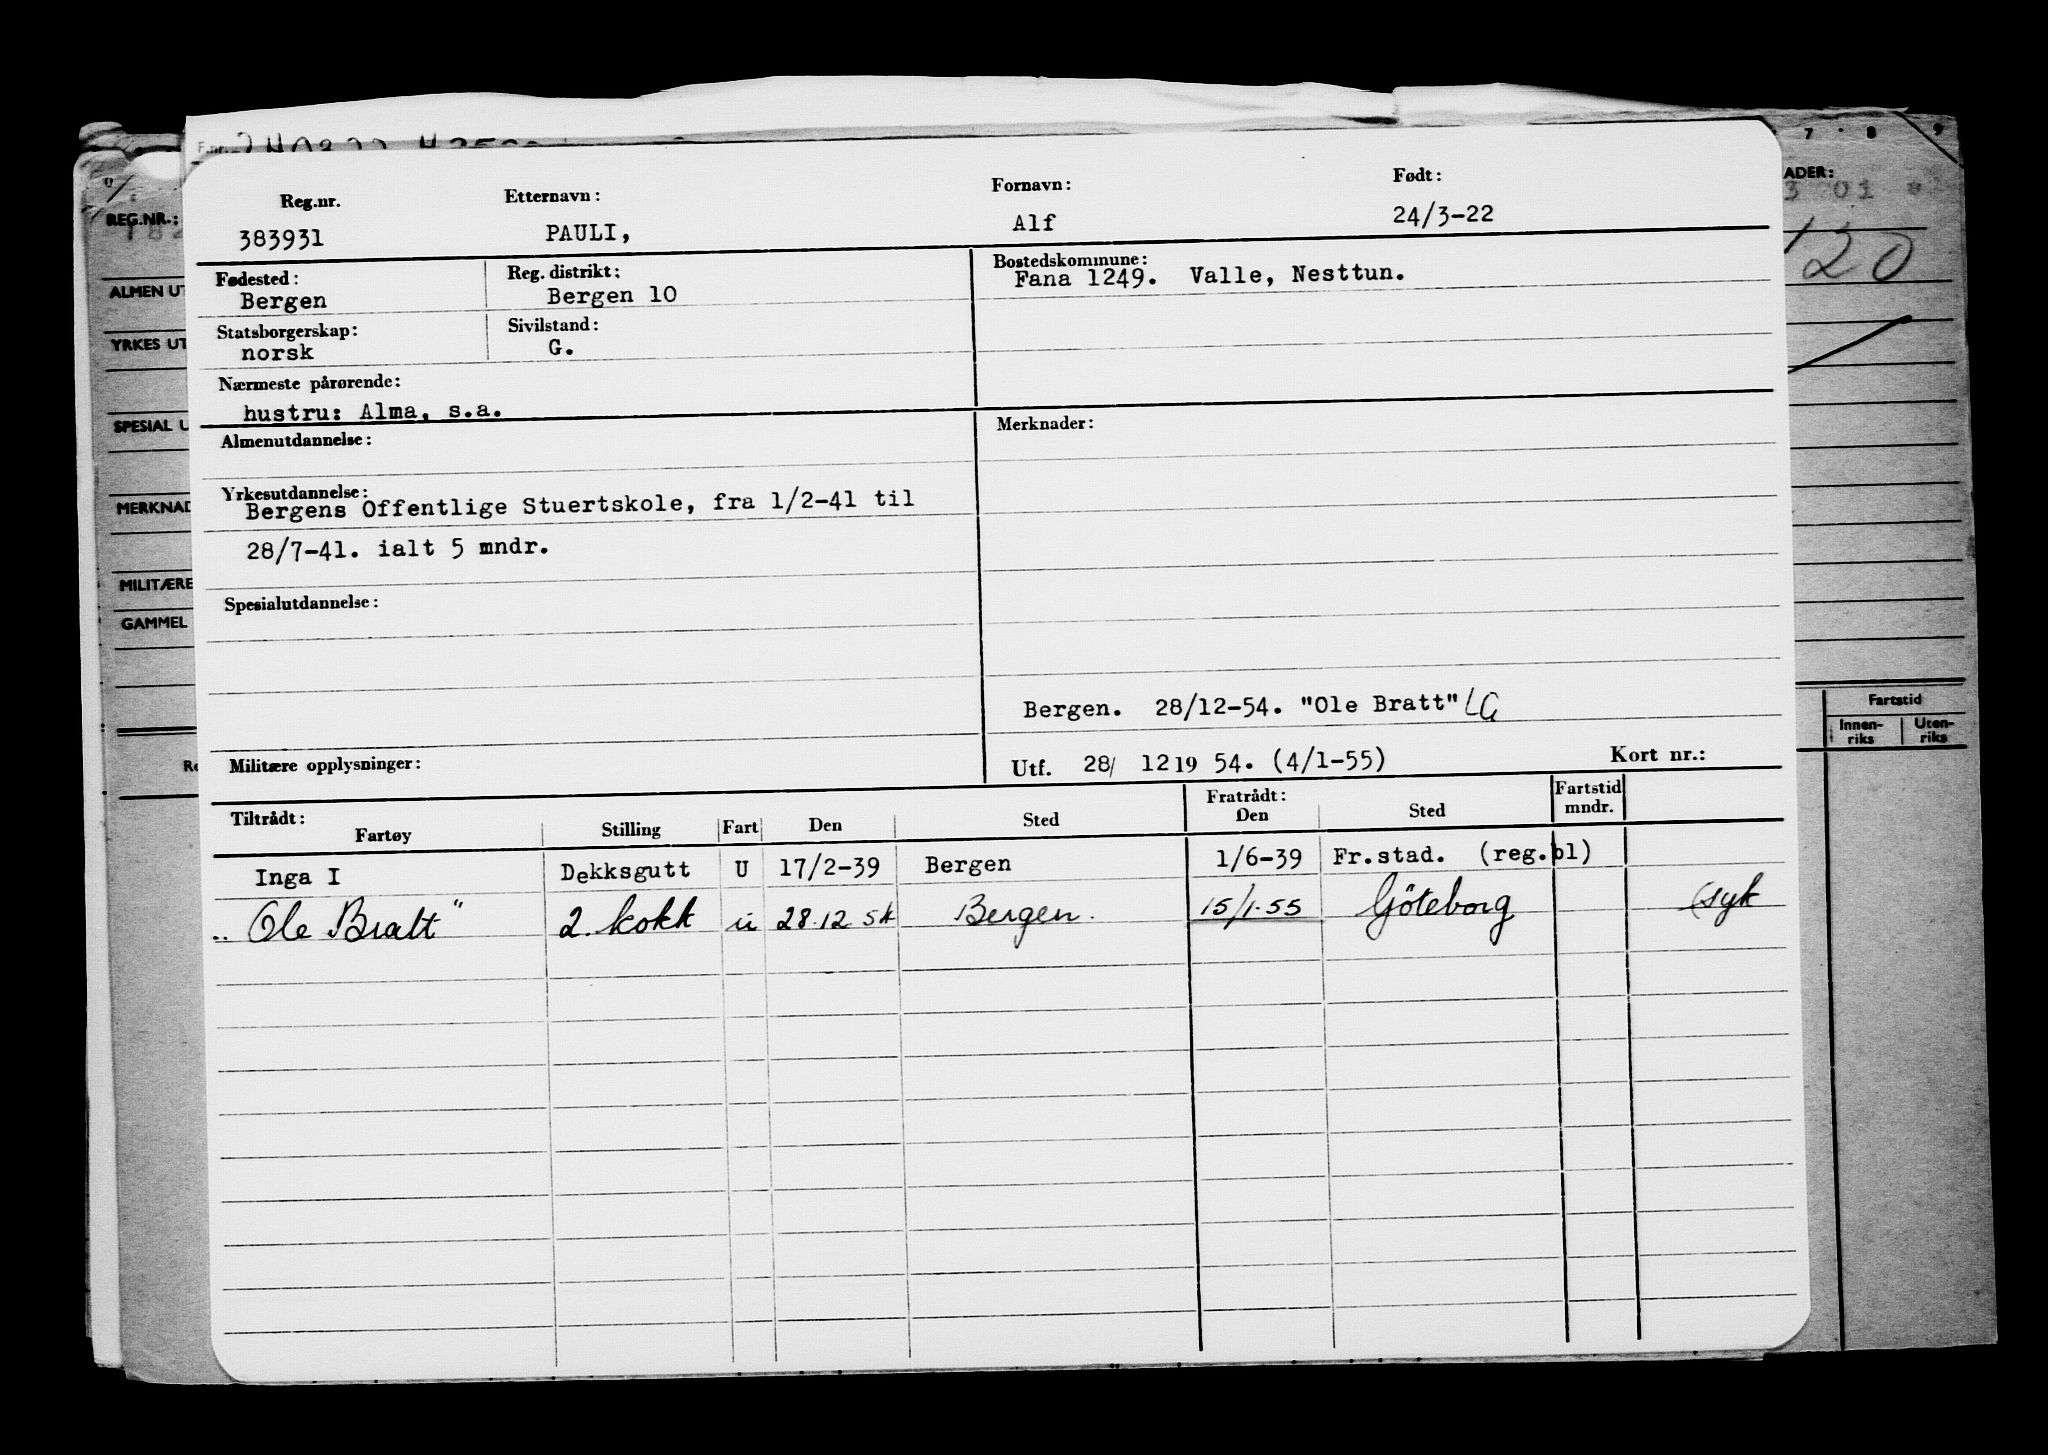 Reg.nr. Etternavn: Fornavn: Født:
383931 PAULI, Alf 24/3-22
Fødested: Reg. distrikt: Bostedskommune:
Bergen Bergen 10 Fana 1249. Valle, Nesttun.
Statsborgerskap: Sivilstand:
norsk G.
Nærmeste pårørende:
hustru: Alma, s.a.
Almenutdannelse: Merknader:
Yrkesutdannelse:
Bergens Offentlige Stuertskole, fra 1/2-41 til
28/7-41. ialt 5 mndr.
Spesialutdannelse:
Bergen. 28/12-54. "Ole Bratt" LG
Militære opplysninger: Utf. 28/ 12 19 54. (4/1-55) Kort nr.:
Tiltrådt: Fratrådt: Fartstid
Fartøy Stilling Fart Den Sted Den Sted mndr.
Inga I Dekksgutt U 17/2-39 Bergen 1/6-39 Fr.stad. (reg.bl)
"Ole Bratt" 2. kokk u 28.12 54 Bergen. 15/1-55 Göteborg (syk
REG.NR.:
ALMEN UT
YRKES UT
SPESIAL U
MERKNAD
MILITÆRE
GAMMEL
7 8 9
ADER:
3 01
120
Fartstid
Innen-
riks Uten-
riks